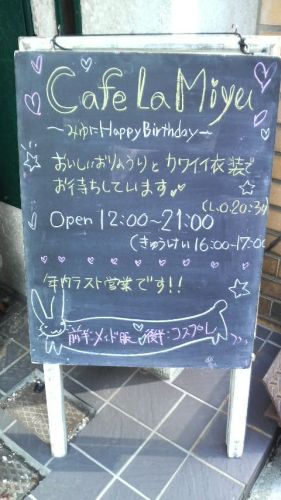 Cafe La Miyu
〜みゆにHappyBirthday〜
おいしいおりょうりとカワイイ衣装で
お待ちしています
(L.O.20:30
Open 12:00〜21:00
(きゅうけい 16:00-17:00
年内ラスト営業です!!
前半:メイド服 後半:コスプレ